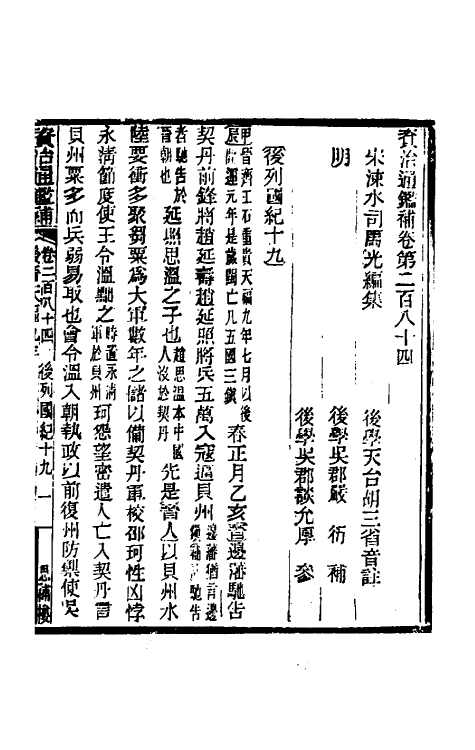 資治通鑑補卷第二百八十四
宋涑水司馬光編集
後學天台胡三省音註
明
後學吳郡嚴衍補
後學吳郡談允厚參
後列國紀十九
甲辰晉齊王石重貴天福九年七月以後開運元年是歲閩亡凡五國三鎮 春正月乙亥晉邊藩馳告
契丹前鋒將趙延壽趙延照將兵五萬入寇逼貝州邊藩猶言邊鎮補馳告
者馳告於晉朝也 延照思溫之子也趙思溫本中國人沒於契丹 先是晉人以貝州水
陸要衝多聚芻粟為大軍數年之儲以備契丹軍校邵珂性凶悖
永清節度使王令溫黜之時置永清軍於貝州 珂怨望密遣人亡入契丹言
貝州粟多而兵弱易取也會令溫入朝執政以前復州防禦使吳
資治通鑑補 卷二百八十四 後列國紀十九 一
思補樓